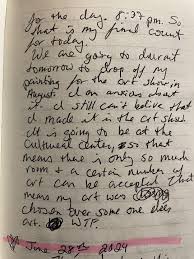 for the day. 8:37 pm. So
that is my final count
for today.
We are going to
tomorrow to drop off my
painting for the art show in
August. I am anxious about
it. I still can't belive that
I made it in the art show.
It is going to be at the
Cultural Center, so that
means there is only so much
room & a certain number of
art can be accepted. That
means my art was
chosen over some one elses
art. WTP.
June 28th 2024